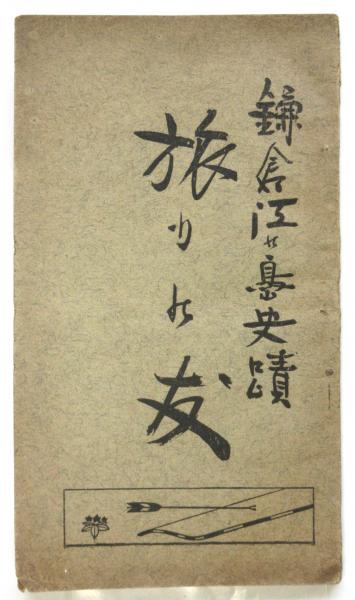 鎌倉江の島史蹟
旅りの友